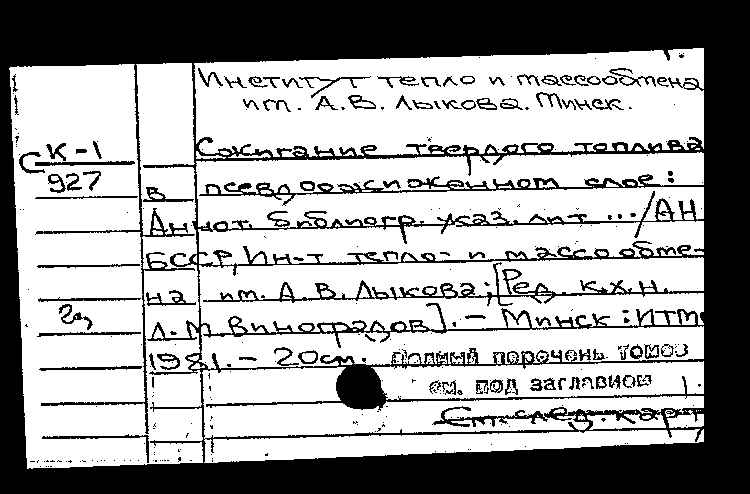 1.
Институт тепло и массообмена
им. А.В. Лыкова. Минск.
С К-1
927
Сожигание твердого топлива
в псевдоожиженном слое:
Аннот. библиогр. указ. лит .../АН
БССР, Ин-т тепло- и массообме-
на им. А.В. Лыкова; [Ред. к.х.н.
Л.М. Виноградов]. - Минск: ИТМ
1981. - 20см. полный перечень томов
см. под заглавием 1.
См. след. карт